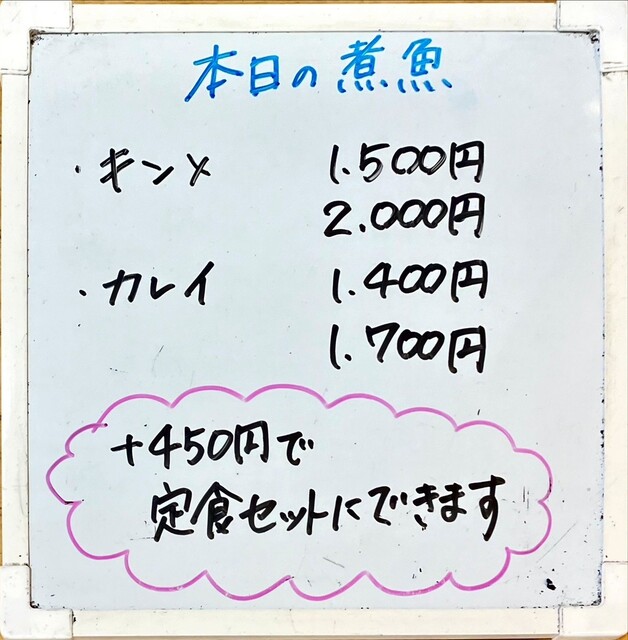 本日の煮魚
・キンメ 1.500円
2.000円
・カレイ 1.400円
1.700円
+450円で
定食セットにできます